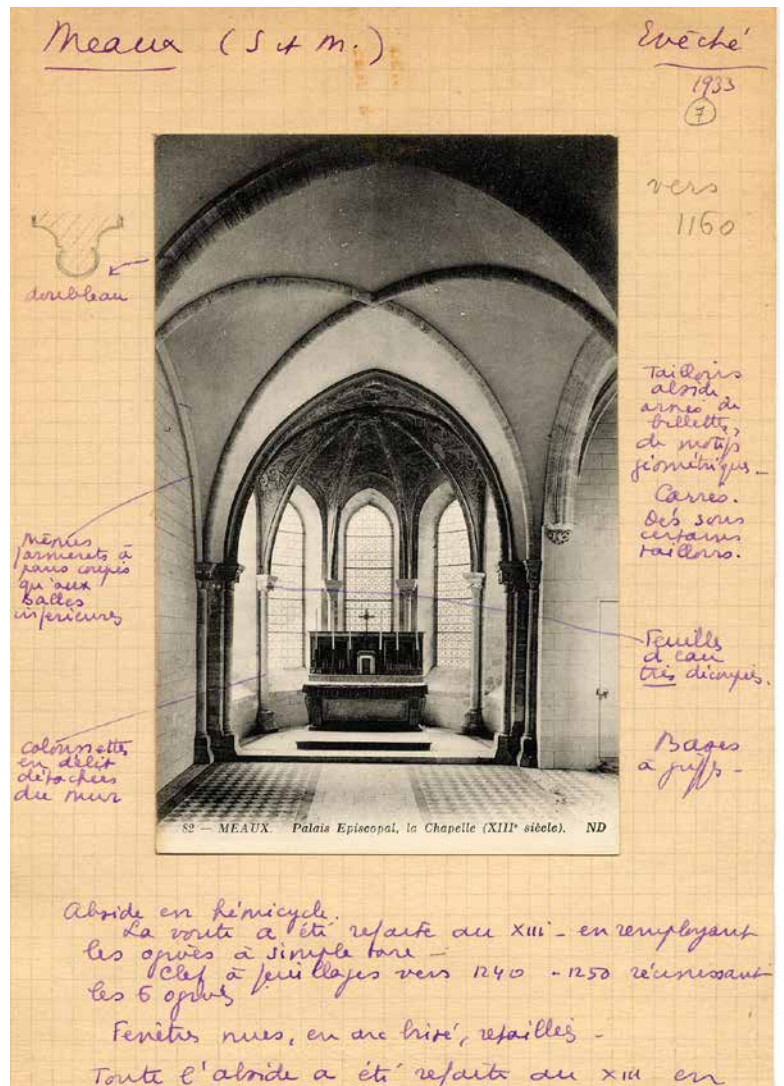 Meaux (S et M.)
Evêché
1933
7
vers
1160
doubleau
Tailloirs
abside
ornés de
billettes,
de motifs
géométriques -
Carrés.
Dés sous
certains
tailloirs.
Mêmes
formerets à
pans coupés
qu'aux
salles
inférieures
Feuilles
d'eau
très découpés.
colonnettes
en délit
détachées
du mur
Bases
à griffes -
82 — MEAUX. Palais Episcopal, la Chapelle (XIIIe siècle). ND
Abside en hémicycle.
La voute a été refaite au XIII - en remployant
les ogives à simple tore -
Clef à feuillages vers 1240 - 1250 réunissant
les 6 ogives
Fenêtres nues, en arc brisé, retaillés -
Toute l'abside a été refaite au XIII en